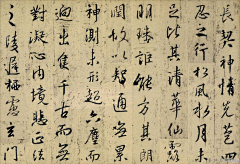 長契神情先苞四
忍之行松風水月未
足比其清華仙露
明珠詎能方其朗
潤故以智通無累
神測未形超六塵而
迥出隻千古而無
對凝心內境悲正法
之陵遲栖慮玄門